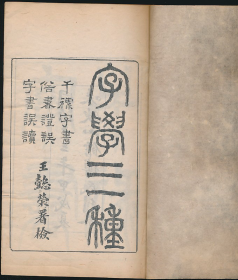 字學三種
干祿字書
俗書證誤
字書誤讀
王懿榮署檢